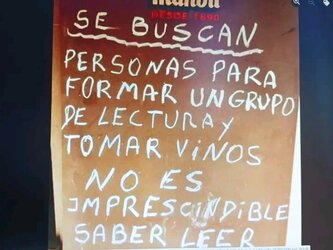 mahou
DESDE 1890
SE BUSCAN
PERSONAS PARA
FORMAR UN GRUPO
DE LECTURA Y
TOMAR VINOS
NO ES
IMPRESCINDIBLE
SABER LEER